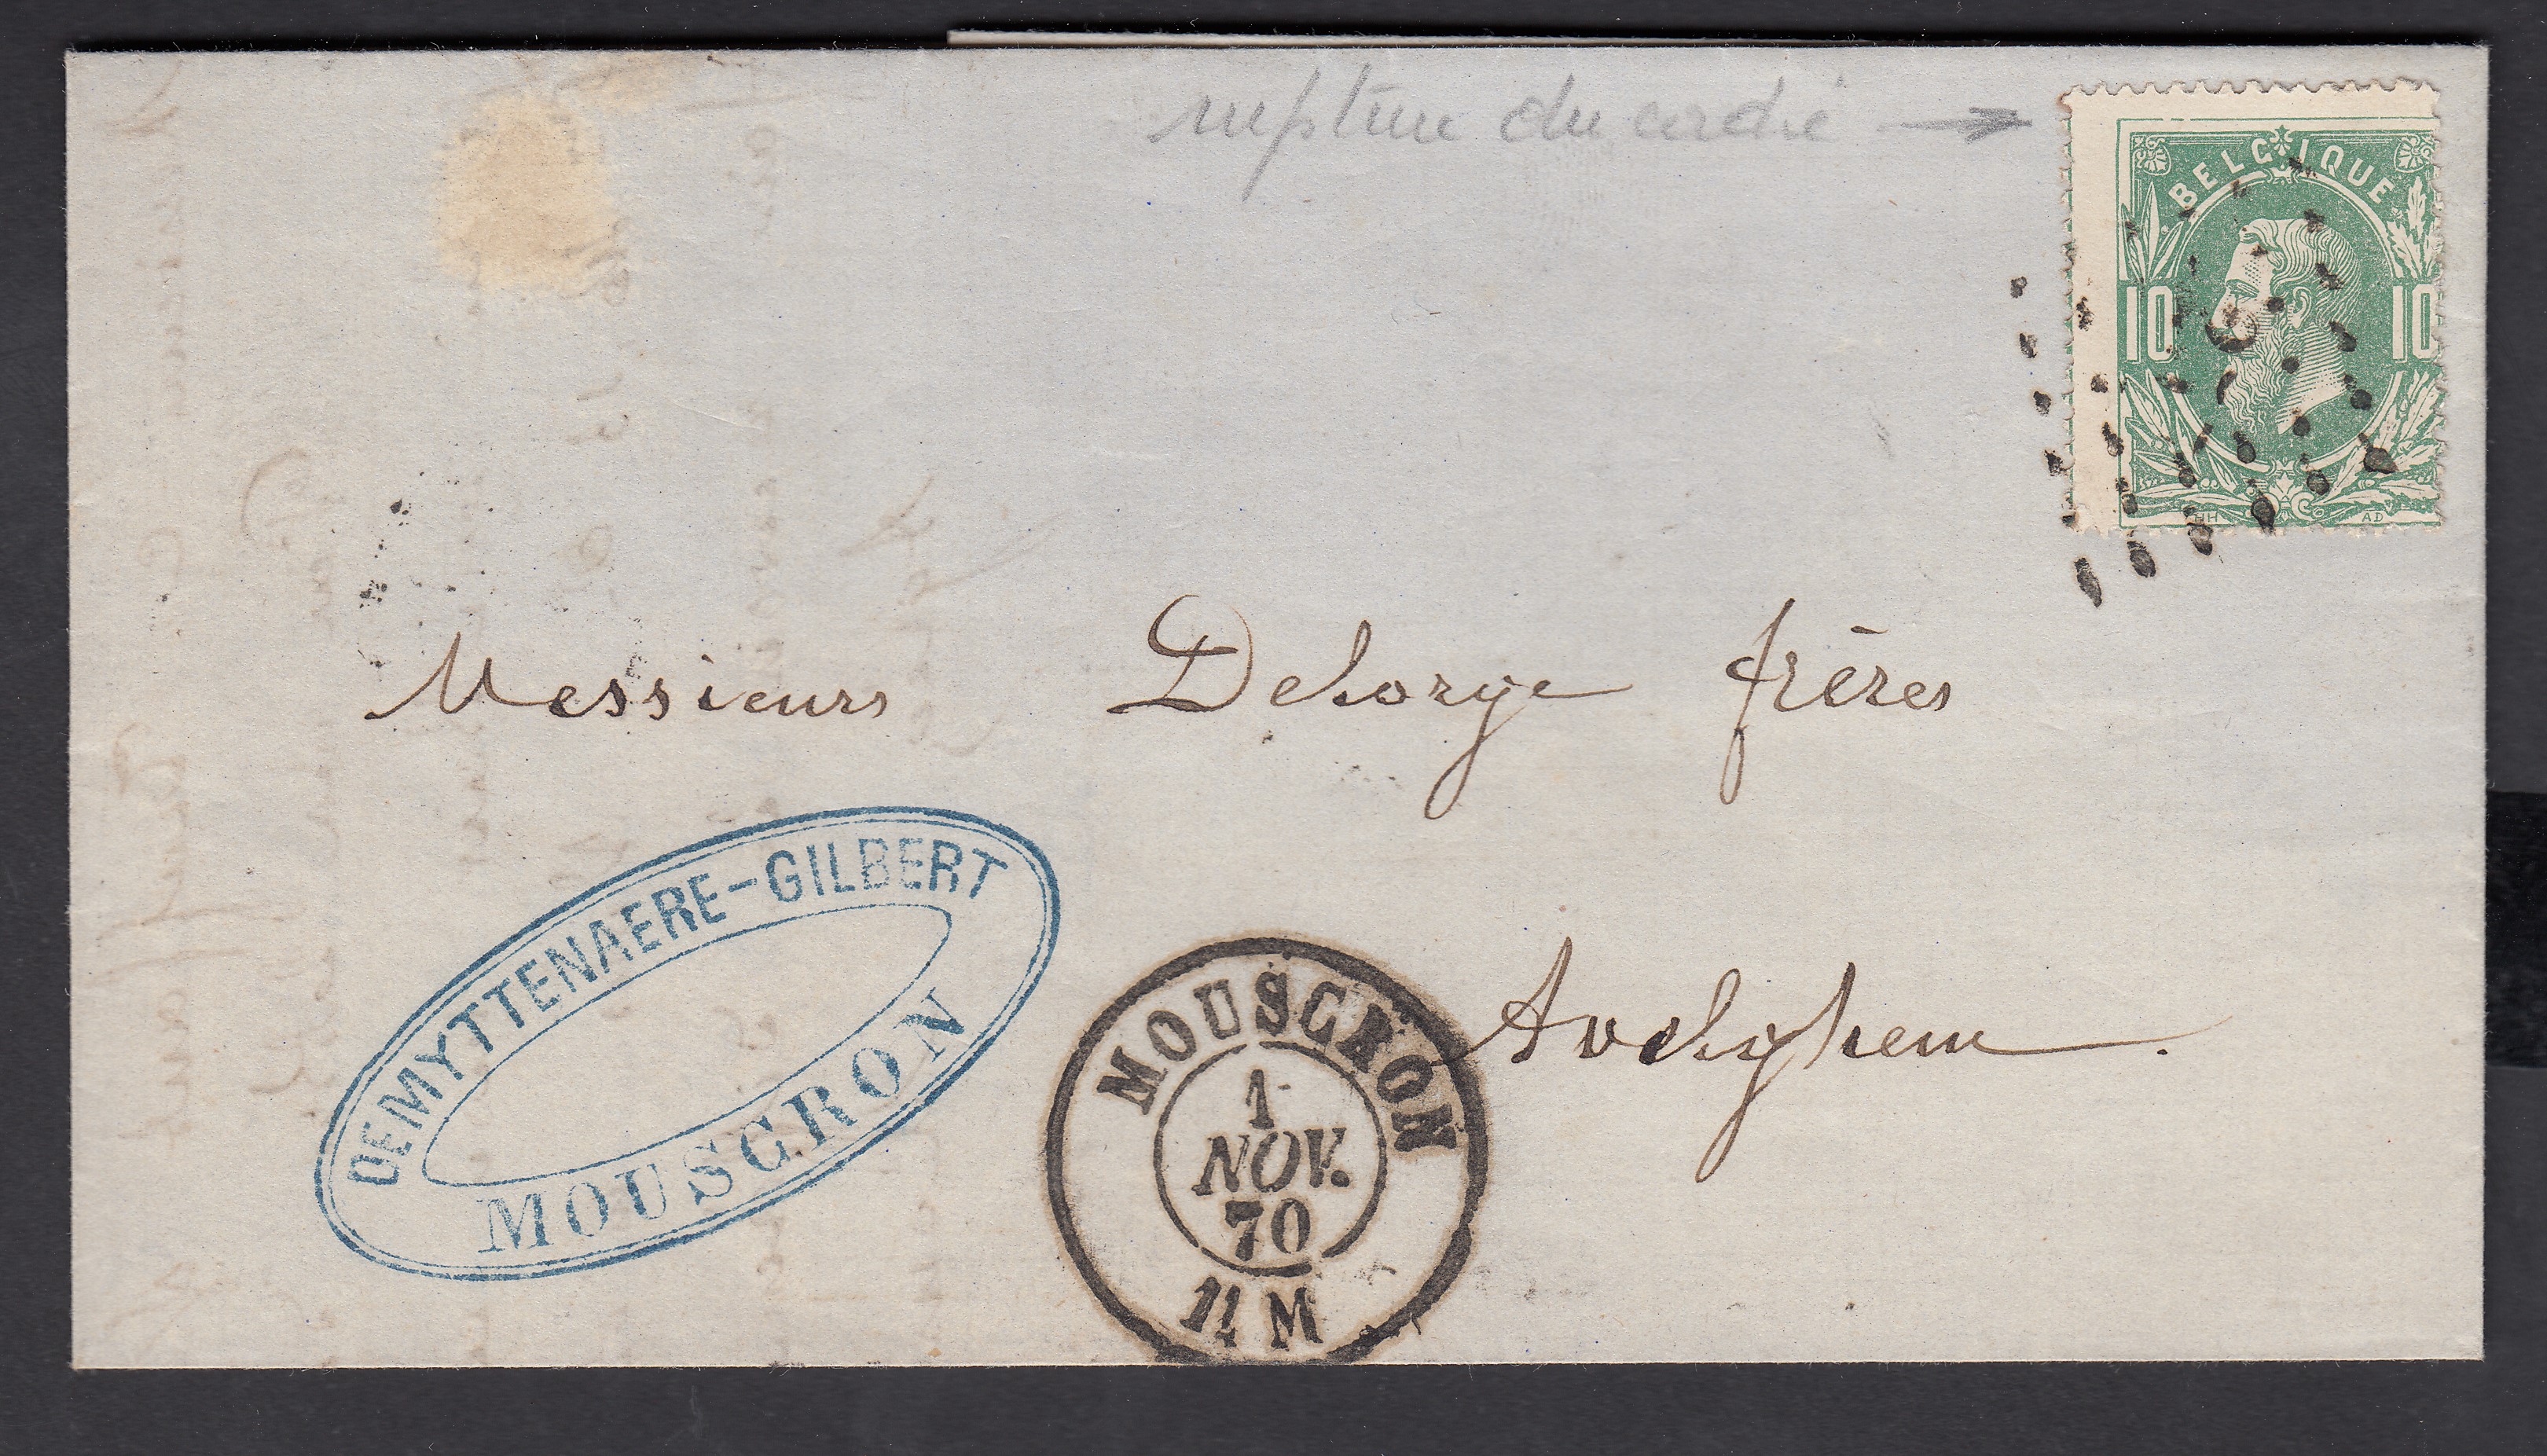 rupture du cadre →
BELGIQUE
10 10
HH AD
Messieurs Delorge frères
Avelghem.
DEMYTTENAERE-GILBERT
MOUSCRON
MOUSCRON
1
NOV.
70
M